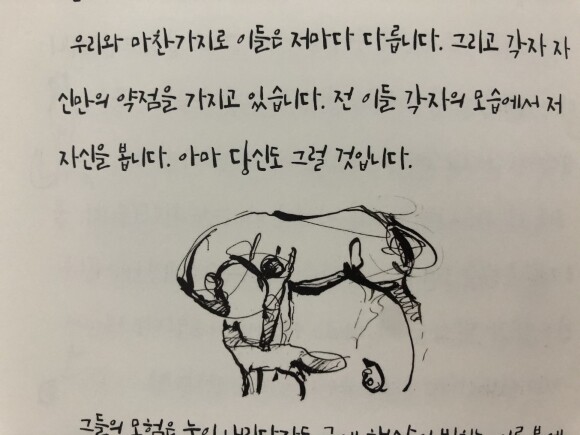 우리와 마찬가지로 이들은 저마다 다릅니다. 그리고 각자 자
신만의 약점을 가지고 있습니다. 전 이들 각자의 모습에서 저
자신을 봅니다. 아마 당신도 그럴 것입니다.
그들의 모험은